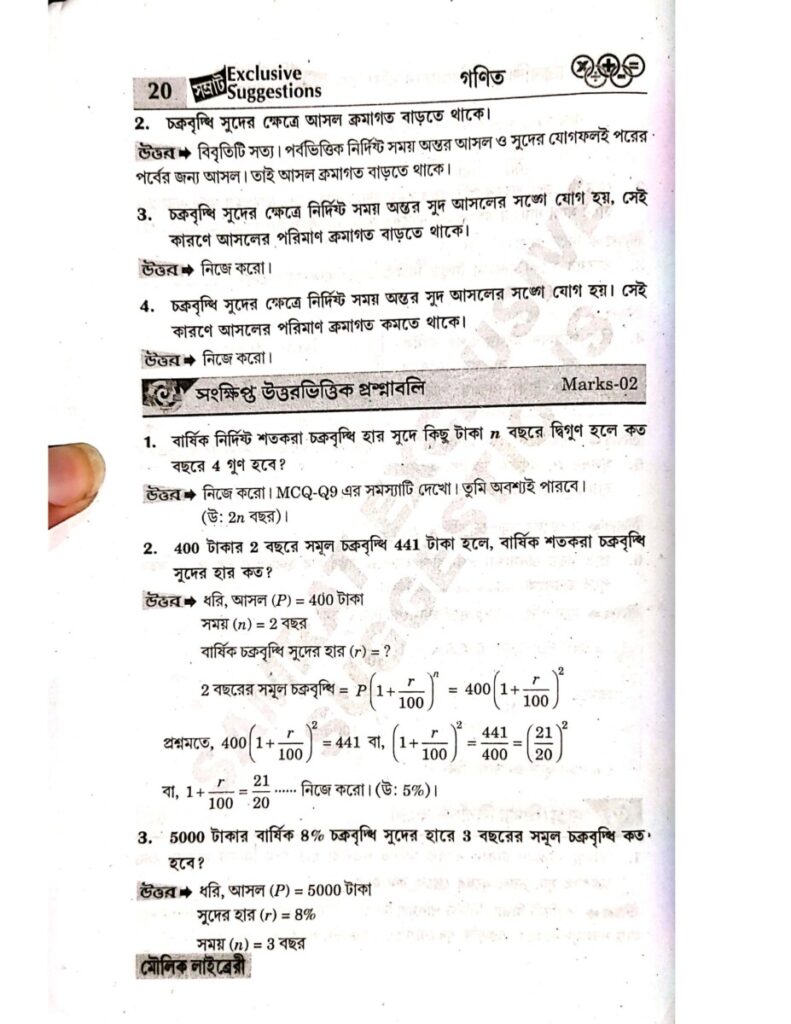 20 সম্রাট Exclusive Suggestions গণিত
2. চক্রবৃদ্ধি সুদের ক্ষেত্রে আসল ক্রমাগত বাড়তে থাকে।
উত্তর ➡ বিবৃতিটি সত্য। পর্বভিত্তিক নির্দিষ্ট সময় অন্তর আসল ও সুদের যোগফলই পরের
পর্বের জন্য আসল। তাই আসল ক্রমাগত বাড়তে থাকে।
3. চক্রবৃদ্ধি সুদের ক্ষেত্রে নির্দিষ্ট সময় অন্তর সুদ আসলের সঙ্গে যোগ হয়, সেই
কারণে আসলের পরিমাণ ক্রমাগত বাড়তে থাকে।
উত্তর ➡ নিজে করো।
4. চক্রবৃদ্ধি সুদের ক্ষেত্রে নির্দিষ্ট সময় অন্তর সুদ আসলের সঙ্গে যোগ হয়। সেই
কারণে আসলের পরিমাণ ক্রমাগত কমতে থাকে।
উত্তর ➡ নিজে করো।
সংক্ষিপ্ত উত্তরভিত্তিক প্রশ্নাবলি Marks-02
1. বার্ষিক নির্দিষ্ট শতকরা চক্রবৃদ্ধি হার সুদে কিছু টাকা n বছরে দ্বিগুণ হলে কত
বছরে 4 গুণ হবে?
উত্তর ➡ নিজে করো। MCQ-Q9 এর সমস্যাটি দেখো। তুমি অবশ্যই পারবে।
(উ: 2n বছর)।
2. 400 টাকার 2 বছরে সমূল চক্রবৃদ্ধি 441 টাকা হলে, বার্ষিক শতকরা চক্রবৃদ্ধি
সুদের হার কত?
উত্তর ➡ ধরি, আসল (P) = 400 টাকা
সময় (n) = 2 বছর
বার্ষিক চক্রবৃদ্ধি সুদের হার (r) = ?
2 বছরের সমূল চক্রবৃদ্ধি = P(1+r/100)^n = 400(1+r/100)^2
প্রশ্নমতে, 400(1+r/100)^2 = 441 বা, (1+r/100)^2 = 441/400 = (21/20)^2
বা, 1+r/100 = 21/20 ...... নিজে করো। (উ: 5%)।
3. 5000 টাকার বার্ষিক 8% চক্রবৃদ্ধি সুদের হারে 3 বছরের সমূল চক্রবৃদ্ধি কত
হবে?
উত্তর ➡ ধরি, আসল (P) = 5000 টাকা
সুদের হার (r) = 8%
সময় (n) = 3 বছর
মৌলিক লাইব্রেরী
SAMRAT EXCLUSIVE
SUGGESTIONS